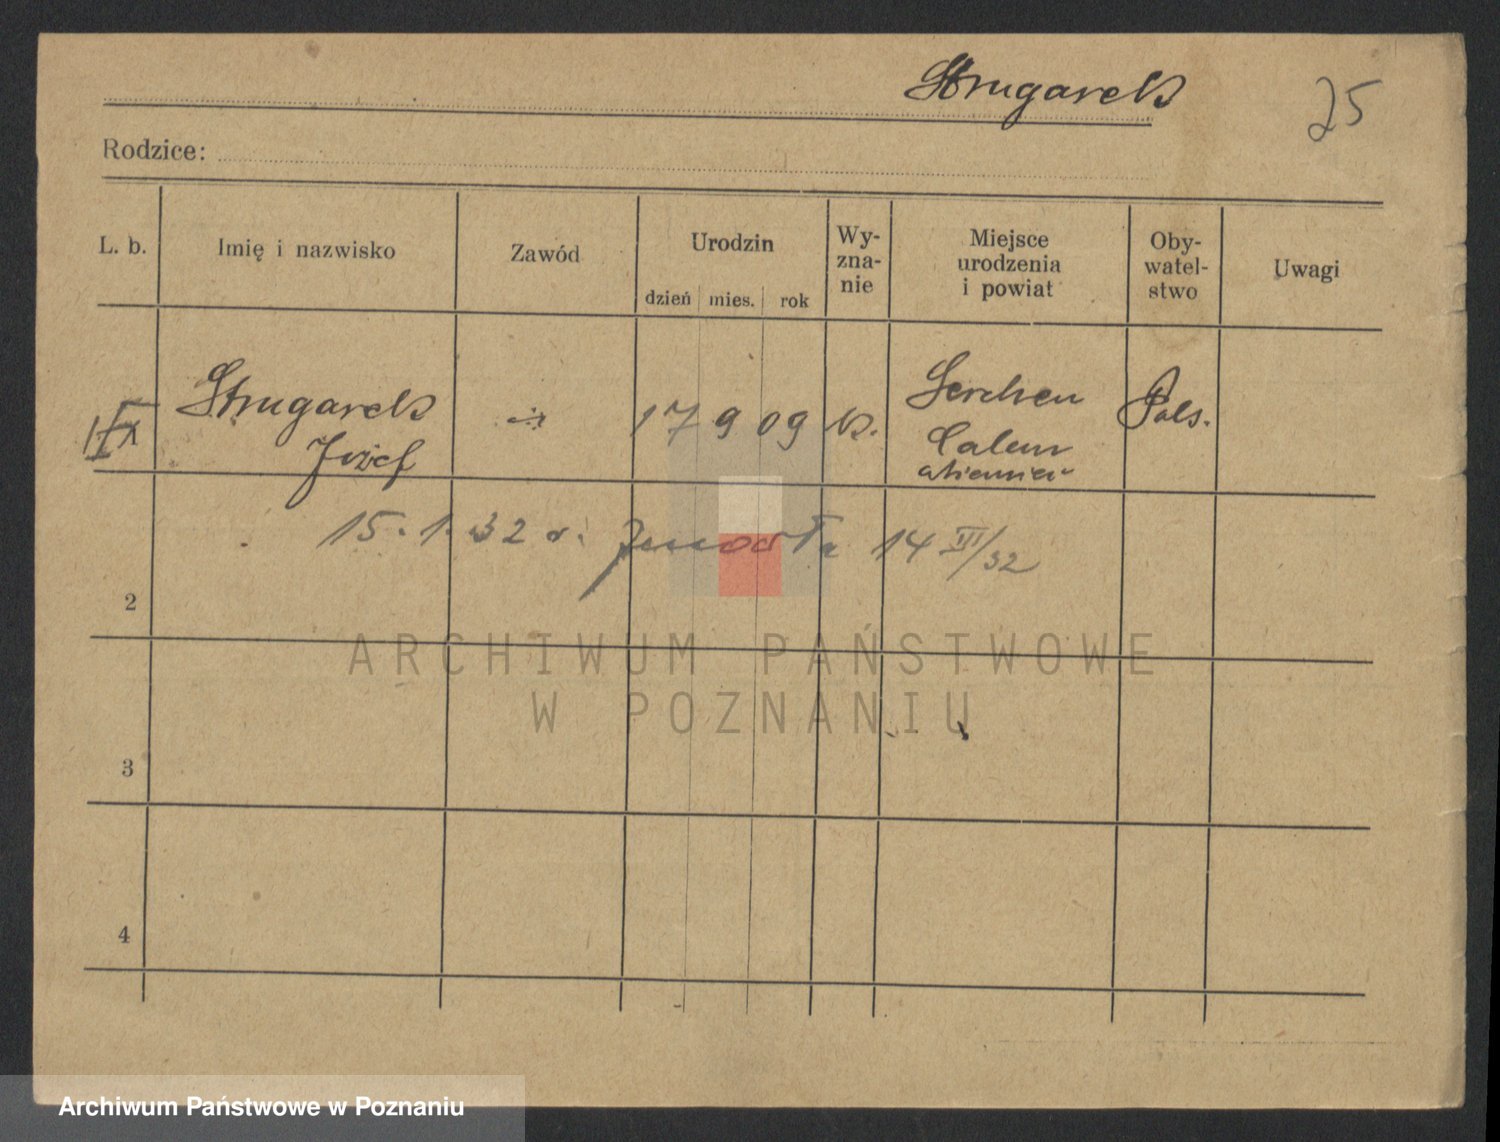 Strugarek
25
Rodzice:
L. b. Imię i nazwisko Zawód Urodzin Wy-zna-nie Miejsce urodzenia i powiat Oby-watel-stwo Uwagi
dzień mies. rok
Strugarek Józef 17 9 09 k. Gerchen Pols.
15. 1. 32 r. 14 III/32
2
3
4
ARCHIWUM PAŃSTWOWE
W POZNANIU
Archiwum Państwowe w Poznaniu